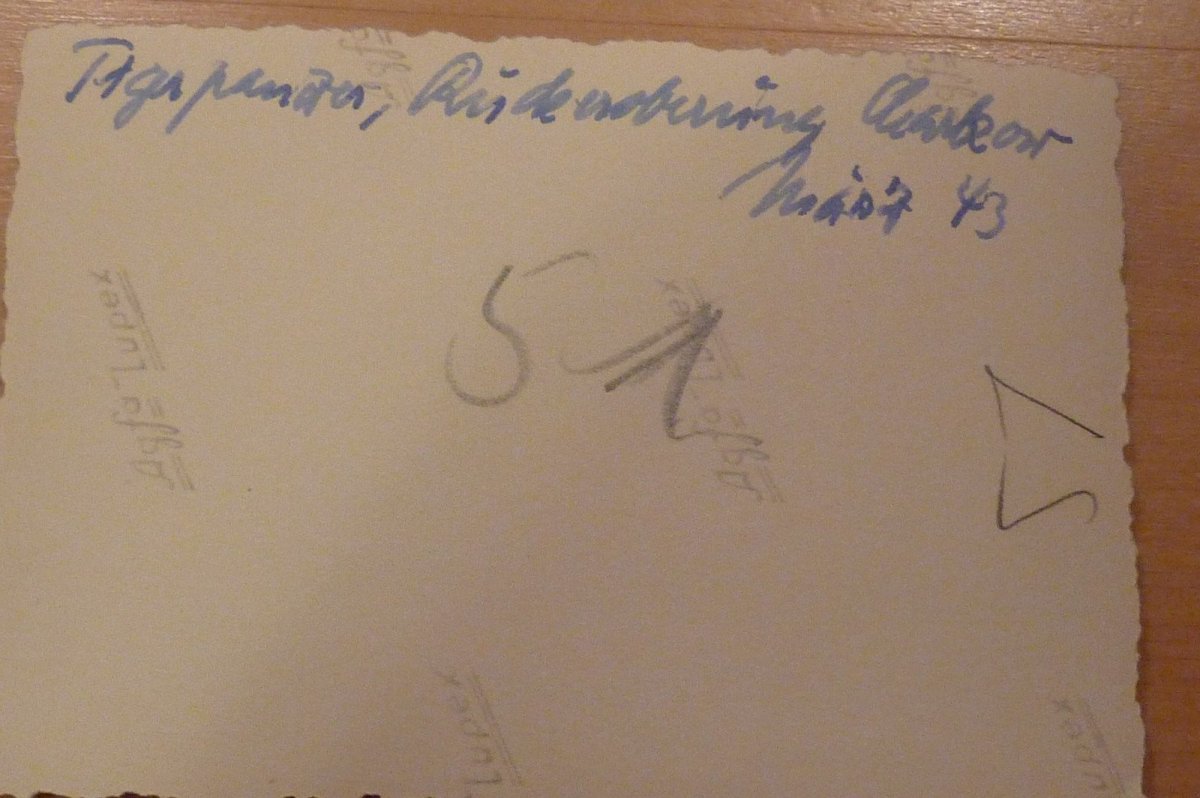 Tigerpanzer, Rückeroberung Charkow
März 43
51
Agfa-Lupex
Agfa-Lupex
Lupex
Lupex
Agfa
Agfa